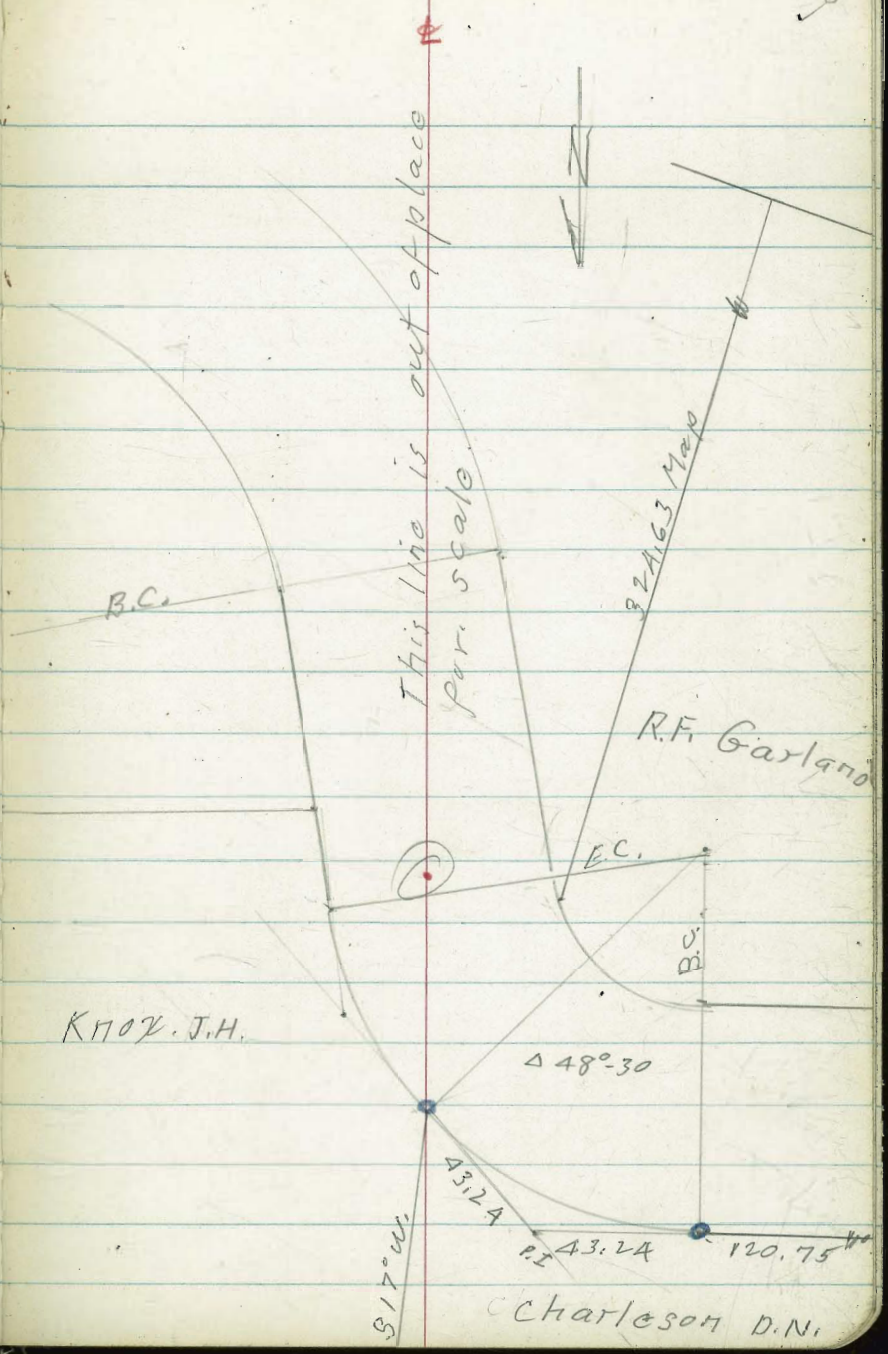 N
This line is out of place
par. scale
324.63 Map
B.C.
R.F. Garland
E.C.
B.C.
Knox. J.H.
Δ 48°-30
43.24
P.I
43.24
120.75
S17°W.
Charleson D.N.